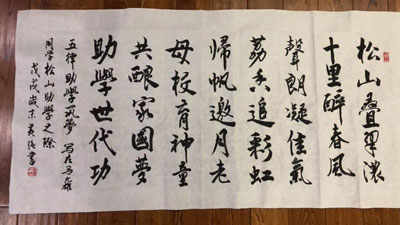 松山疊翠濃
十里醉春风
聲朗凝佳氣
荔香追彩虹
歸帆邀月老
母校育神童
共醸家國夢
助學世代功
五律助學筑夢 寫在马雄
同学松山助學之際
戊戌歲末 書